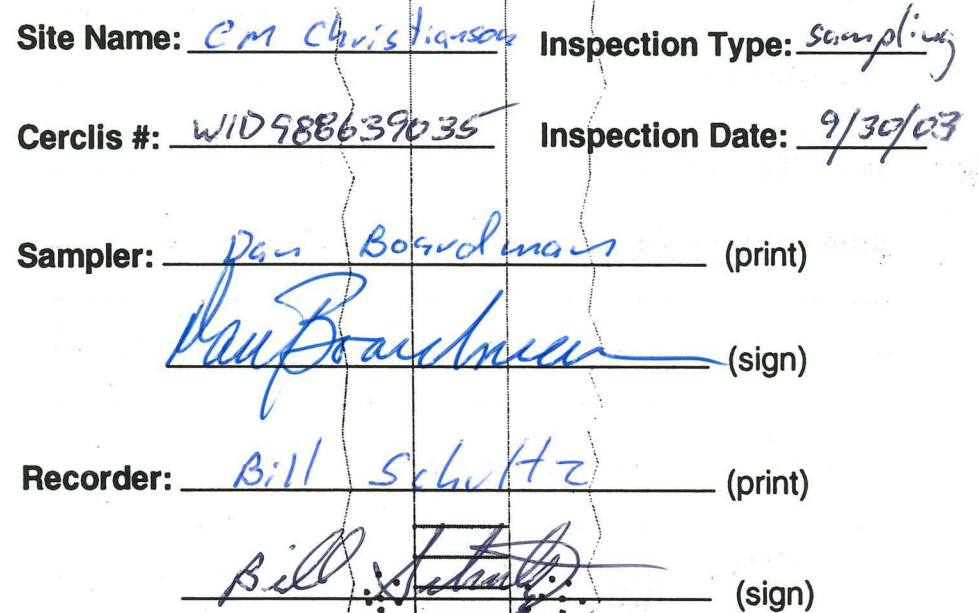 Site Name: CM Christianson Inspection Type: sampling
Cerclis #: WID988639035 Inspection Date: 9/30/03
Sampler: Dan Boardman (print)
Dan Boardman (sign)
Recorder: Bill Schultz (print)
Bill Schultz (sign)